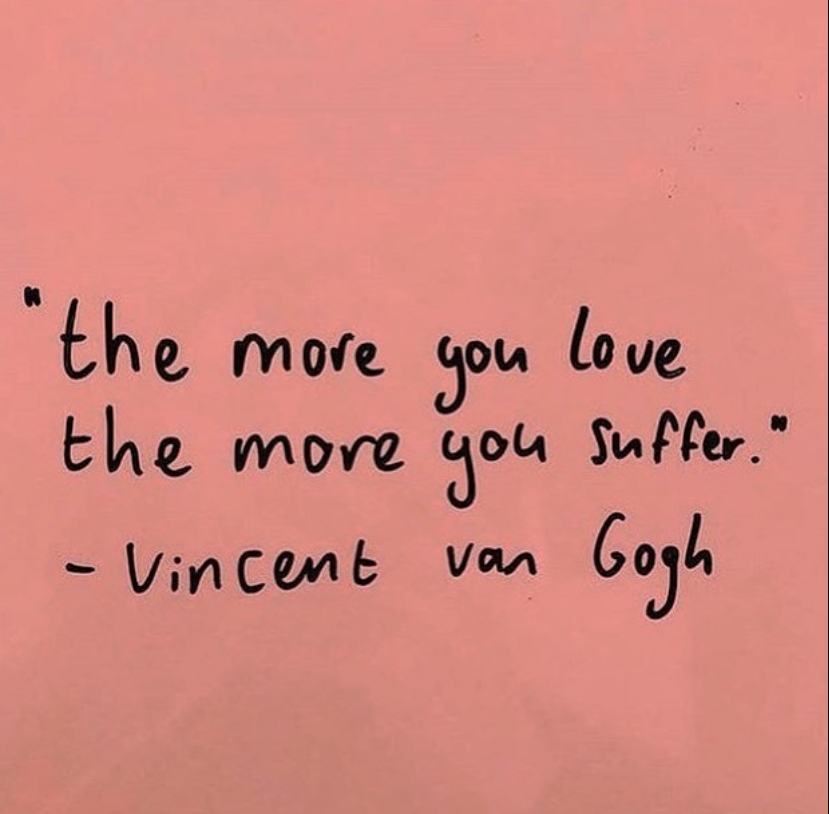 "the more you love
the more you suffer."
- Vincent van Gogh